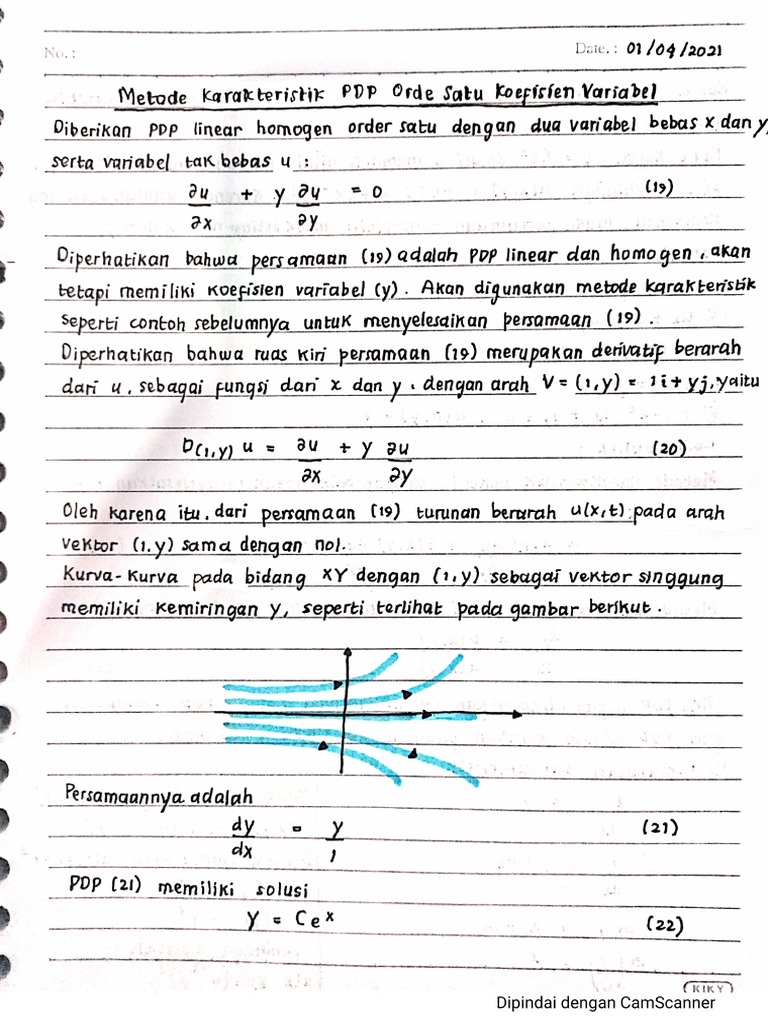 No. :
Date. : 01/04/2021
Metode Karakteristik PDP Orde Satu Koefisien Variabel
Diberikan PDP linear homogen order satu dengan dua variabel bebas x dan y,
serta variabel tak bebas u :
∂u/∂x + y ∂u/∂y = 0 (19)
Diperhatikan bahwa persamaan (19) adalah PDP linear dan homogen, akan
tetapi memiliki koefisien variabel (y). Akan digunakan metode karakteristik
seperti contoh sebelumnya untuk menyelesaikan persamaan (19).
Diperhatikan bahwa ruas kiri persamaan (19) merupakan derivatif berarah
dari u, sebagai fungsi dari x dan y, dengan arah V = (1,y) = 1i + yj, yaitu
D(1,y) u = ∂u/∂x + y ∂u/∂y (20)
Oleh karena itu, dari persamaan (19) turunan berarah u(x,t) pada arah
vektor (1,y) sama dengan nol.
Kurva-kurva pada bidang XY dengan (1,y) sebagai vektor singgung
memiliki kemiringan y, seperti terlihat pada gambar berikut.
Persamaannya adalah
dy/dx = y/1 (21)
PDP (21) memiliki solusi
y = Ce^x (22)
KIKY
Dipindai dengan CamScanner